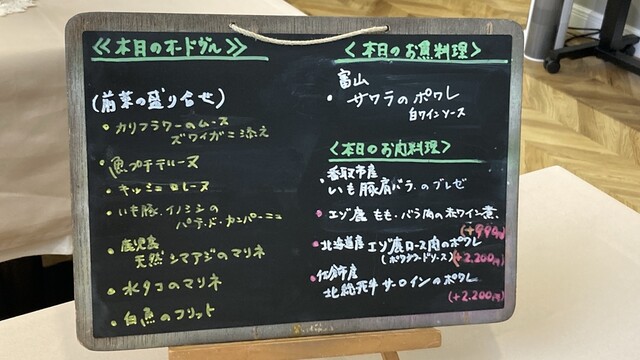 ≪本日のオードヴル≫
(前菜の盛り合せ)
• カリフラワーのムース
ズワイガニ添え
• 魚プチテリーヌ
• キッシュロレーヌ
• いも豚、イノシシの
パテ・ド・カンパーニュ
• 鹿児島
天然シマアジのマリネ
• 水タコのマリネ
• 白魚のフリット
<本日のお魚料理>
富山
• サワラのポワレ
白ワインソース
<本日のお肉料理>
香取市産
• いも豚肩バラのブレゼ
• エゾ鹿 もも・バラ肉の赤ワイン煮
• 北海道産 エゾ鹿ロース肉のポワレ
(ポワヴラードソース) (+2,200円)
• 北総和牛サーロインのポワレ
(+2,200円)